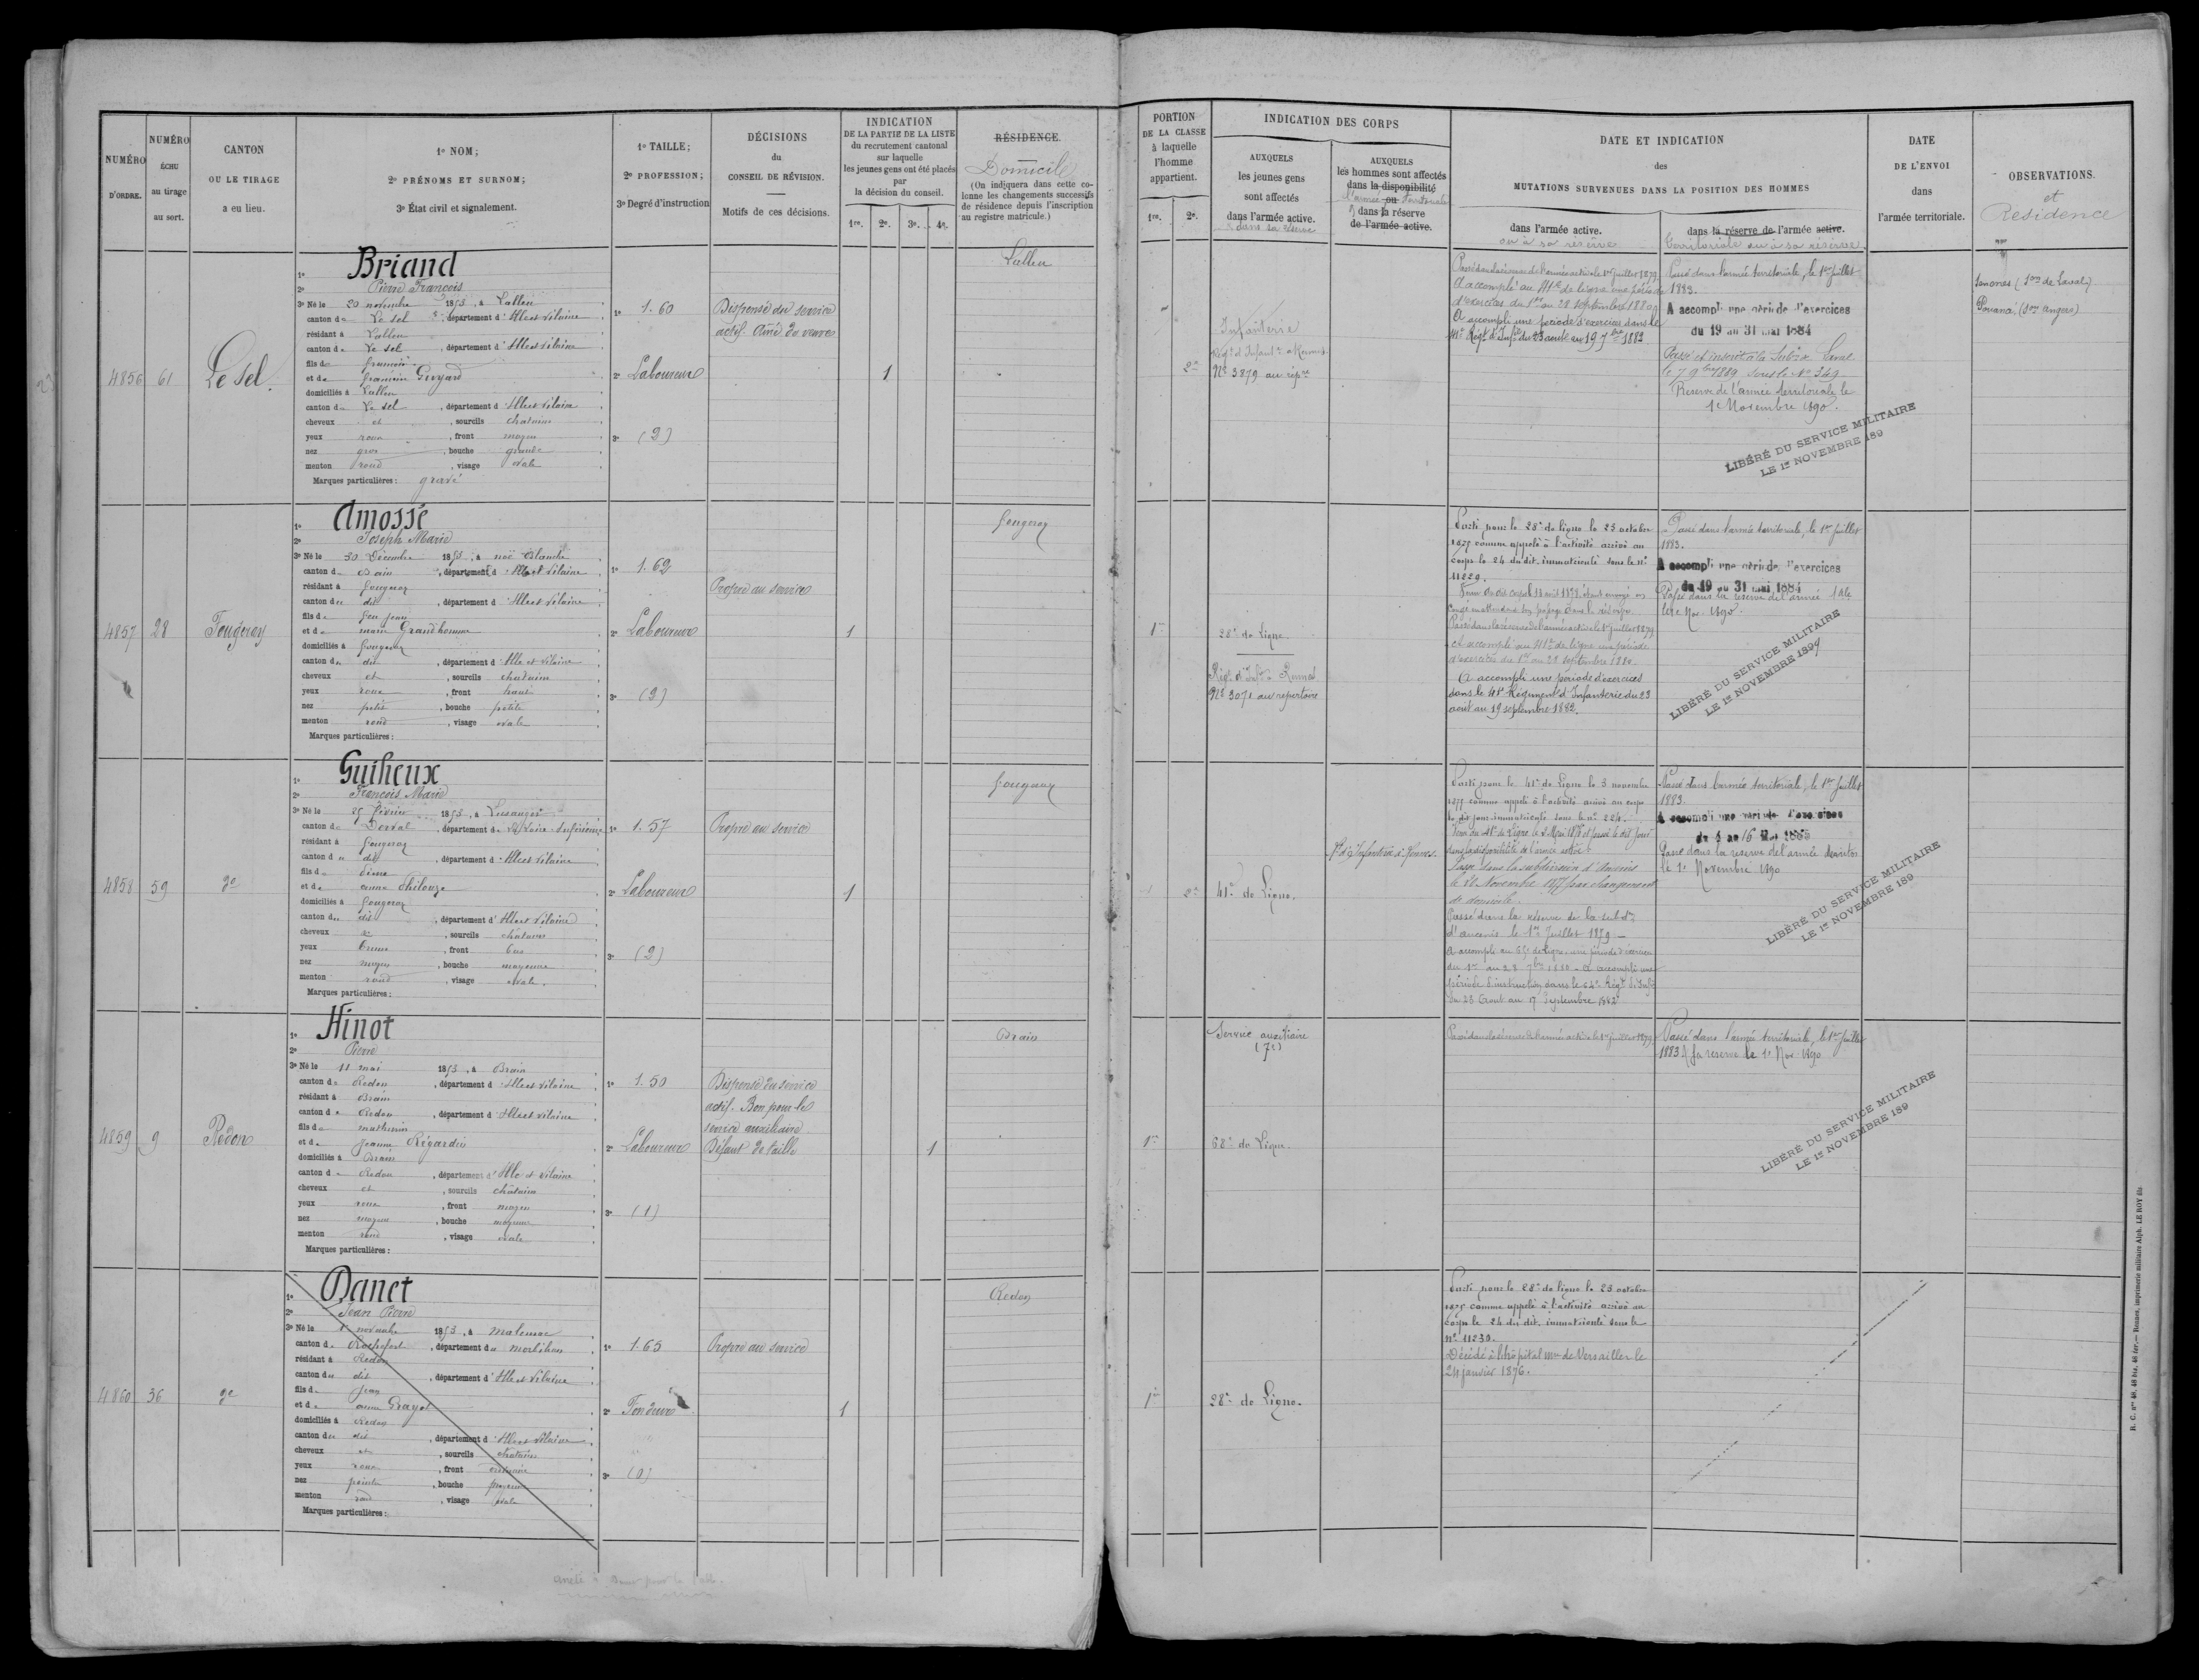 NUMÉRO
D'ORDRE.
NUMÉRO
ÉCHU
au tirage
au sort.
CANTON
OU LE TIRAGE
a eu lieu.
1º NOM;
2º PRÉNOMS ET SURNOM;
3º État civil et signalement.
1º TAILLE;
2º PROFESSION;
3º Degré d'instruction
DÉCISIONS
du
CONSEIL DE RÉVISION.
Motifs de ces décisions.
INDICATION
DE LA PARTIE DE LA LISTE
du recrutement cantonal
sur laquelle
les jeunes gens ont été placés
par
la décision du conseil.
1re. 2e. 3e. 4e.
RÉSIDENCE.
Domicile
(On indiquera dans cette co-
lonne les changements successifs
de résidence depuis l'inscription
au registre matricule.)
PORTION
DE LA CLASSE
à laquelle
l'homme
appartient.
1re. 2e.
INDICATION DES CORPS
AUXQUELS
les jeunes gens
sont affectés
dans l'armée active.
dans sa réserve
AUXQUELS
les hommes sont affectés
dans la disponibilité
l'armée ou territoriale
dans la réserve
de l'armée active.
DATE ET INDICATION
des
MUTATIONS SURVENUES DANS LA POSITION DES HOMMES
dans l'armée active.
ou à sa réserve
dans la réserve de l'armée active.
territoriale ou à sa réserve
DATE
DE L'ENVOI
dans
l'armée territoriale.
OBSERVATIONS.
et
Résidence
4856 61 Le Sel.
1º Briand
2º Pierre François
3º Né le 20 novembre 1853, à Lalleu
canton de Le Sel, département d'Ille et Vilaine
résidant à Lalleu
canton de Le Sel, département d'Ille et Vilaine
fils de
et de Gruyard
domiciliés à Lalleu
canton de Le Sel, département d'Ille et Vilaine
cheveux et, sourcils chatains
yeux roux, front moyen
nez gros, bouche grande
menton rond, visage ovale
Marques particulières: gravé
1º 1.60
2º Laboureur
3º (2)
Dispensé du service
actif. Aîné de veuve
1
Lalleu
2e
Infanterie
Régt d'Infant. à Rennes.
Nº 3879 au répre
Passé dans la réserve de l'armée active le 1er juillet 1879
A accompli au 41e de ligne une période
d'exercices du 1er au 28 septembre 1880
A accompli une période d'exercices dans le
41e Régt d'Infie du 23 août au 19 7bre 1882
Passé dans l'armée territoriale, le 1er juillet
1883.
A accompli une période d'exercices
du 19 au 31 mai 1884
Passé et inscrit à la Subon Laval
le 7 9bre 1889 sous le Nº 349
Réserve de l'armée territoriale le
1er Novembre 1890.
LIBÉRÉ DU SERVICE MILITAIRE
LE 1er NOVEMBRE 189
(Son de Laval)
(Son Angers)
4857 28 Fougeray
1º Amossé
2º Joseph Marie
3º Né le 30 Décembre 1853, à noë Blanche
canton de Bain, département d'Ille et Vilaine
résidant à Fougeray
canton du dit, département d'Ille et Vilaine
fils de feu Jean
et de marie Grandhomme
domiciliés à Fougeray
canton du dit, département d'Ille et Vilaine
cheveux et, sourcils chatains
yeux roux, front haut
nez petit, bouche petite
menton rond, visage ovale
Marques particulières:
1º 1.62
2º Laboureur
3º (2)
Propre au service
1
Fougeray
1re
28e de Ligne.
Régt d'Infie à Rennes
Nº 3071 au répertoire
Parti pour le 28e de ligne le 23 octobre
1875 comme appelé à l'activité arrivé au
corps le 24 du dit, immatriculé sous le nº
11229.
Passé dans la réserve de l'armée active le 1er juillet 1879
A accompli au 41e de ligne une période
d'exercices du 1er au 28 septembre 1880
A accompli une période d'exercices
dans le 41e Régiment d'Infanterie du 23
août au 19 septembre 1882.
Passé dans l'armée territoriale, le 1er juillet
1883.
A accompli une période d'exercices
du 19 au 31 mai 1884
Passé dans la réserve de l'armée tale
le 1er Nov. 1890.
LIBÉRÉ DU SERVICE MILITAIRE
LE 1er NOVEMBRE 1899
4858 59 do
1º Guiheux
2º François Marie
3º Né le 25 février 1853, à Lusanger
canton de Derval, département de la Loire Inférieure
résidant à Fougeray
canton du dit, département d'Ille et Vilaine
fils de
et de anne Thilouze
domiciliés à Fougeray
canton du dit, département d'Ille et Vilaine
cheveux et, sourcils châtains
yeux bruns, front bas
nez moyen, bouche moyenne
menton rond, visage ovale.
Marques particulières:
1º 1.57
2º Laboureur
3º (2)
Propre au service
1
Fougeray
2e
41e de Ligne.
Parti pour le 41e de Ligne le 3 novembre
1875 comme appelé à l'activité arrivé au corps
le dit jour, immatriculé sous le nº 224.
dans la disponibilité de l'armée active.
Passé dans la subdivision d'Ancenis
le 28 Novembre 1877 par changement
de domicile.
Passé dans la réserve de la subdon
d'ancenis le 1er Juillet 1879
A accompli au 65e de Ligne une période d'exercices
du 1er au 28 7bre 1880 - A accompli une
période d'instruction dans le 64e Régt d'Infie
du 23 Août au 17 Septembre 1882
Passé dans l'armée territoriale, le 1er Juillet
1883.
A accompli une période d'exercices
Passé dans la réserve de l'armée territor
le 1er Novembre 1890
LIBÉRÉ DU SERVICE MILITAIRE
LE 1er NOVEMBRE 189
4859 9 Redon
1º Hinot
2º Pierre
3º Né le 11 mai 1853, à Brain
canton de Redon, département d'Ille et Vilaine
résidant à Brain
canton de Redon, département d'Ille et Vilaine
fils de mathurin
et de Jeanne Régardin
domiciliés à Brain
canton de Redon, département d'Ille et Vilaine
cheveux et, sourcils châtains
yeux roux, front moyen
nez moyen, bouche moyenne
menton rond, visage ovale
Marques particulières:
1º 1.50
2º Laboureur
3º (1)
Dispensé du service
actif. Bon pour le
service auxiliaire
Défaut de taille
1
Brain
1re
Service auxiliaire
(7e)
68e de Ligne.
Passé dans la réserve de l'armée active le 1er juillet 1879
Passé dans l'armée territoriale, le 1er Juillet
1883 & sa réserve le 1er Nov. 1890
LIBÉRÉ DU SERVICE MILITAIRE
LE 1er NOVEMBRE 189
4860 36 do
1º Danet
2º Jean Pierre
3º Né le novembre 1853, à malansac
canton de Rochefort, département du morbihan
résidant à Redon
canton du dit, département d'Ille et Vilaine
fils de Jean
et de anne Grayol
domiciliés à Redon
canton du dit, département d'Ille et Vilaine
cheveux et, sourcils chatains
yeux roux, front ordinaire
nez pointu, bouche moyenne
menton rond, visage ovale
Marques particulières:
1º 1.65
2º Fondeur
3º (0)
Propre au service
1
Redon
1re
28e de Ligne.
Parti pour le 28e de ligne le 23 octobre
1875 comme appelé à l'activité arrivé au
corps le 24 du dit, immatriculé sous le
nº 11230.
Décédé à l'hôpital mre de Versailles le
24 janvier 1876.
R. C. nos 40, 46 bis, 46 ter.— Rennes, imprimerie militaire Alph. LE ROY fils.